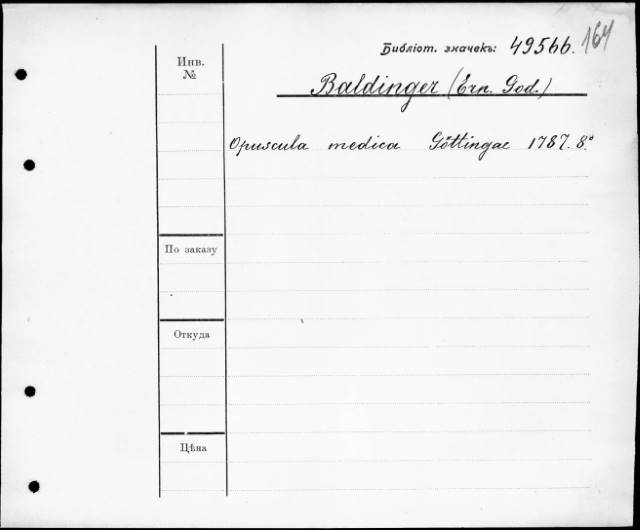 Библіот. значекъ: 49566. 164
Инв.
№
Baldinger (Ern. God.)
Opuscula medica Göttingae 1787. 8.°
По заказу
Откуда
Цѣна